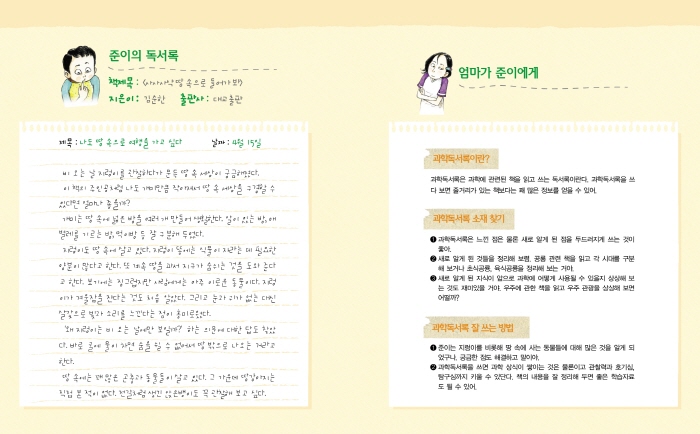 준이의 독서록
책제목 : 〈사사사삭 땅 속으로 들어가 봐!〉
지은이 : 김순한 출판사 : 대교출판
제목 : 나도 땅 속으로 여행을 가고 싶다 날짜 : 4월 15일
비 오는 날 지렁이를 관찰하다가 문득 땅 속 세상이 궁금해졌다.
이 책의 주인공처럼 나도 개미만큼 작아져서 땅 속 세상을 구경할 수
있다면 얼마나 좋을까?
개미는 땅 속에 넓은 방을 여러 개 만들어 생활한다. 알이 있는 방, 애
벌레를 기르는 방, 먹이방 등 잘 구분해 두었다.
지렁이도 땅 속에 살고 있다. 지렁이 똥에는 식물이 자라는 데 필요한
양분이 많다고 한다. 또 계속 땅을 파서 지구가 숨쉬는 것을 도와 준다
고 한다. 보기에는 징그럽지만 사람에게는 아주 이로운 동물이다. 지렁
이가 겨울잠을 잔다는 것도 처음 알았다. 그리고 눈과 귀가 없는 대신
살갗으로 빛과 소리를 느낀다는 점이 흥미로웠다.
'왜 지렁이는 비 오는 날에만 보일까?' 하는 의문에 대한 답도 찾았
다. 바로 굴에 물이 차면 숨을 쉴 수 없어서 땅 밖으로 나오는 거라고
한다.
땅 속에는 꽤 많은 곤충과 동물들이 살고 있다. 그 가운데 땅강아지는
직접 본 적이 없다. 전갈처럼 생긴 앉은뱅이도 꼭 관찰해 보고 싶다.
엄마가 준이에게
과학독서록이란?
과학독서록은 과학에 관련된 책을 읽고 쓰는 독서록이란다. 과학독서록을 쓰
다 보면 줄거리가 있는 책보다는 꽤 많은 정보를 얻을 수 있어.
과학독서록 소재 찾기
❶ 과학독서록은 느낀 점은 물론 새로 알게 된 점을 두드러지게 쓰는 것이
좋아.
❷ 새로 알게 된 것들을 정리해 보렴. 공룡 관련 책을 읽고 각 시대를 구분
해 보거나 초식공룡, 육식공룡을 정리해 보는 거야.
❸ 새로 알게 된 지식이 앞으로 과학에 어떻게 사용될 수 있을지 상상해 보
는 것도 재미있을 거야. 우주에 관한 책을 읽고 우주 관광을 상상해 보면
어떨까?
과학독서록 잘 쓰는 방법
❶ 준이는 지렁이를 비롯해 땅 속에 사는 동물들에 대해 많은 것을 알게 되
었구나. 궁금한 점도 해결하고 말이야.
❷ 과학독서록을 쓰면 과학 상식이 쌓이는 것은 물론이고 관찰력과 호기심,
탐구심까지 키울 수 있단다. 책의 내용을 잘 정리해 두면 좋은 학습자료
도 될 수 있어.